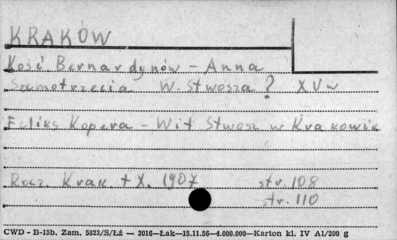 KRAKÓW
Kość Bernardynów - Anna
Samotrzecia W. Stwosza? XVw
Feliks Kopera - Wit Stwosz w Krakowie
Rocz. Krak. t X. 1907 str. 108
str. 110
CWD - B-15b. Zam. 5823/S/Łź — 3016—Łak—15.11.56—4.000.000—Karton kl. IV A1/200 g